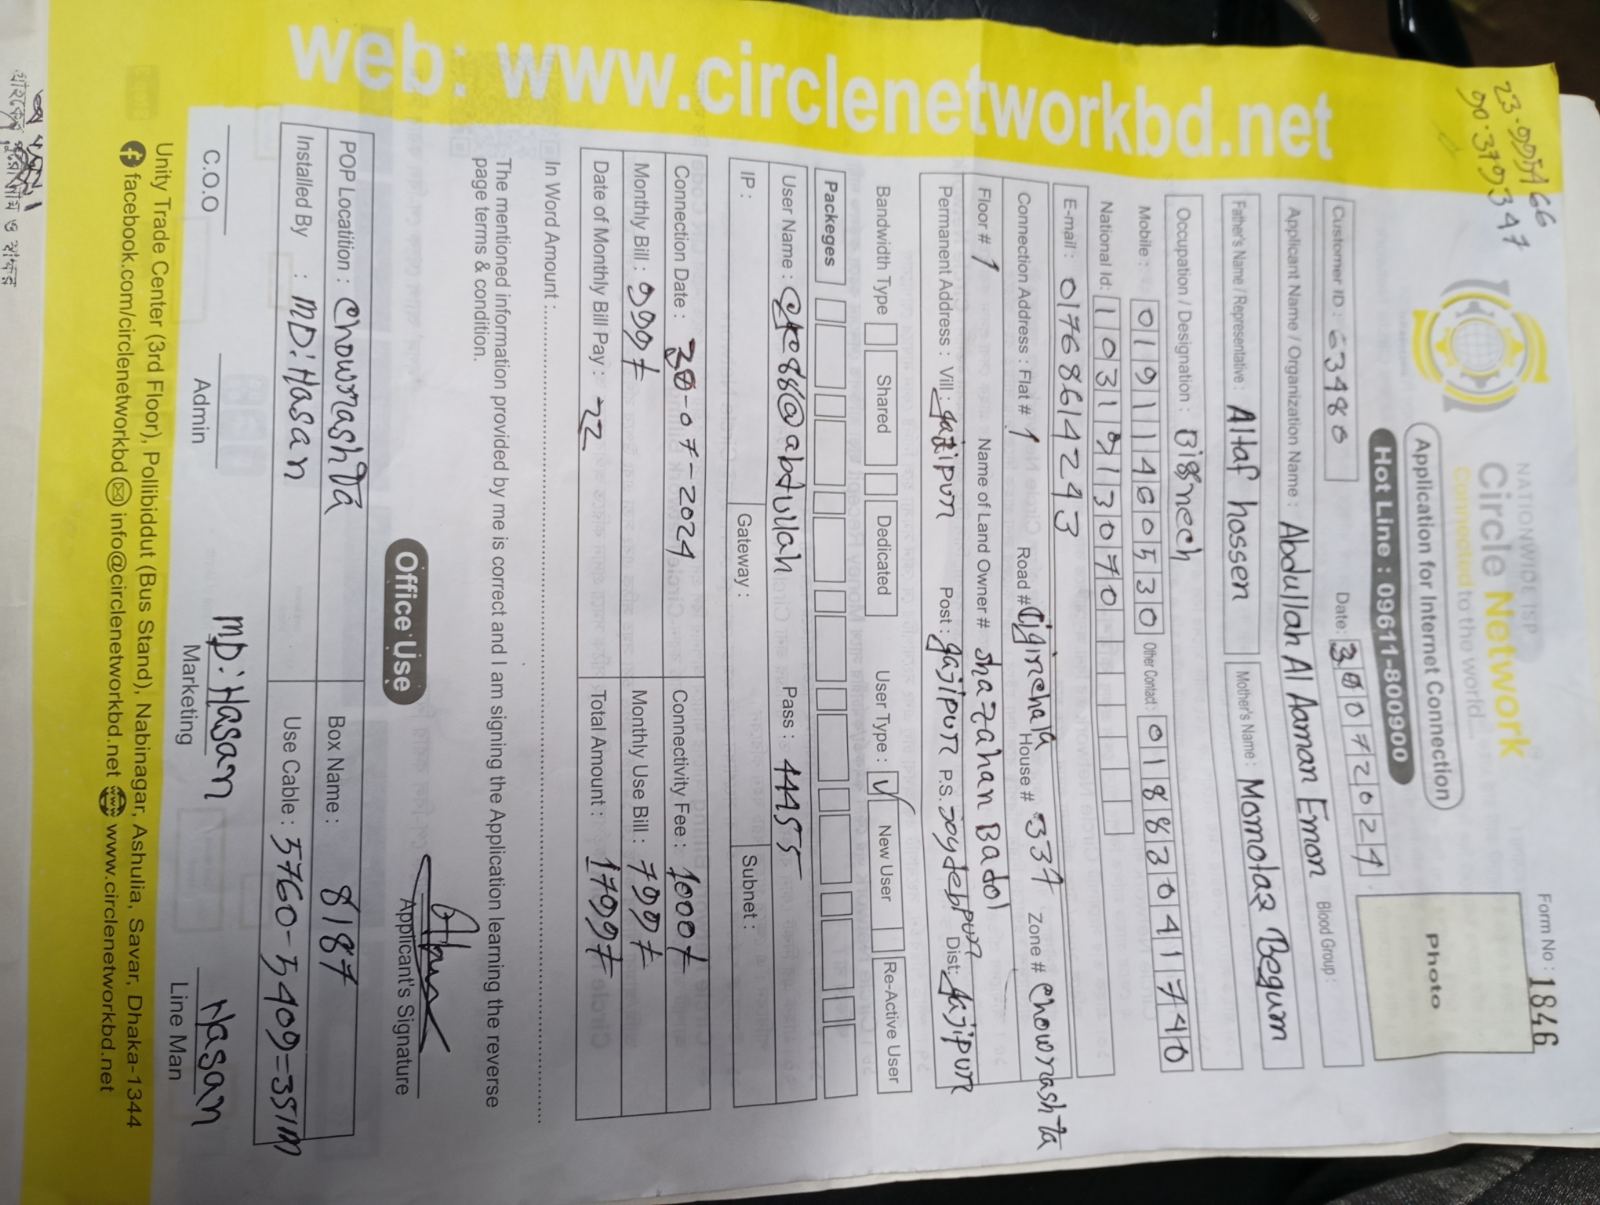 Form No : 1846
NATIONWIDE ISP
Circle Network
Connected to the world...
Application for Internet Connection
Hot Line : 09611-800900
Photo
Customer ID : 63480 Date: 30072024
Applicant Name / Organization Name : Abdullah Al Aaman Emon Blood Group :
Father's Name / Representative : Altaf hossen Mother's Name : Momotaz Begum
Occupation / Designation : Bisnech
Mobile : 01911460530 Other Contact : 01883041740
National Id: 1031913070
E-mail : 01768614243
Connection Address : Flat # 1 Road # House # 337 Zone # chowrashta
Floor # 1 Name of Land Owner # shazahan Badol
Permanent Address : Vill : gazipur Post : gajipur P.S. Joydebpur Dist: gajipur
Bandwidth Type Shared Dedicated User Type : ✓ New User Re-Active User
Packeges
User Name : @abdullah Pass : 44455
IP : Gateway : Subnet :
Connection Date : 30-07-2024 Connectivity Fee : 1000৳
Monthly Bill : 799৳ Monthly Use Bill : 799৳
Date of Monthly Bill Pay : Total Amount : 1799৳
In Word Amount :
The mentioned information provided by me is correct and I am signing the Application learning the reverse
page terms & condition.
Applicant's Signature
Office Use
POP Locatition : chowrashta Box Name : 8187
Installed By : MD: Hasan Use Cable : 5760-5409=351m
MD: Hasan Hasan
C.O.O Admin Marketing Line Man
Unity Trade Center (3rd Floor), Pollibiddut (Bus Stand), Nabinagar, Ashulia, Savar, Dhaka-1344
facebook.com/circlenetworkbd info@circlenetworkbd.net www.circlenetworkbd.net
web: www.circlenetworkbd.net